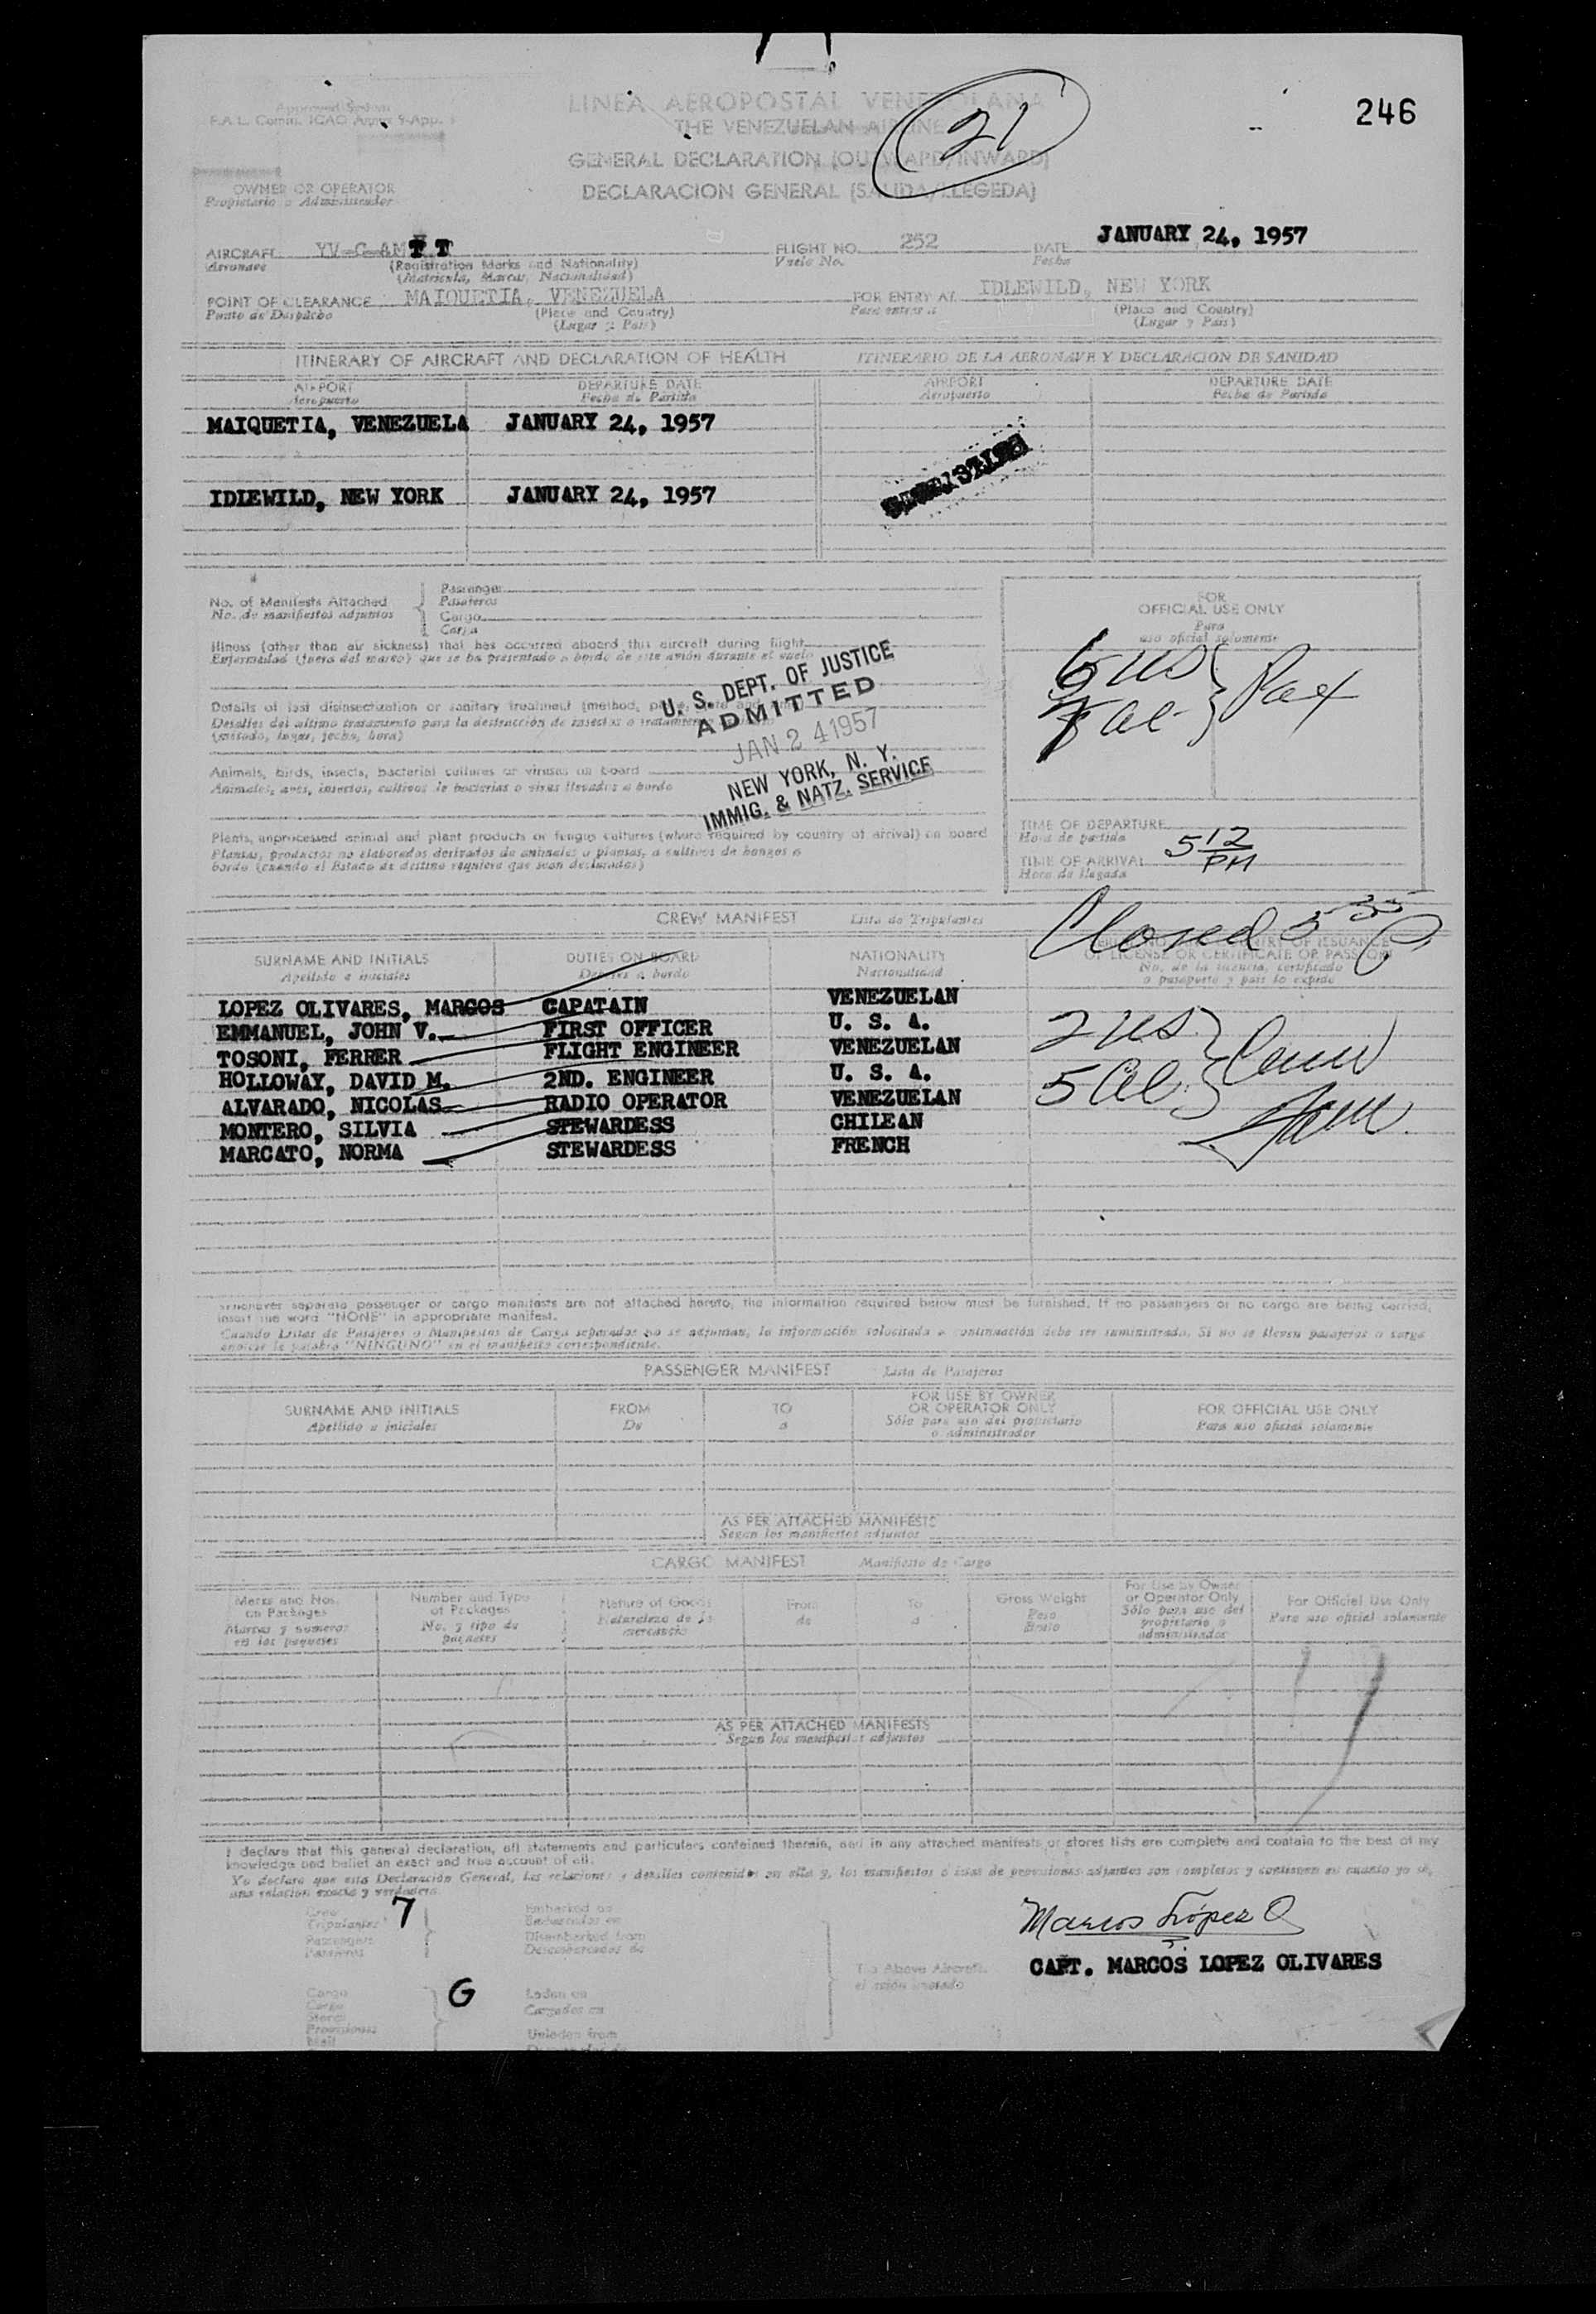 246
21
Approved System
F.A.L. Comm. ICAO Annex 9-App.
LINEA AEROPOSTAL VENEZOLANA
THE VENEZUELAN AIRLINE
GENERAL DECLARATION (OUTWARD/INWARD)
DECLARACION GENERAL (SALIDA/LLEGEDA)
OWNER OR OPERATOR
Propietario o Administrador
AIRCRAFT YV-C-AM TT FLIGHT NO. 252 DATE JANUARY 24, 1957
Aeronave (Registration Marks and Nationality) Vuelo No. Fecha
(Matricula, Marcas, Nacionalidad)
POINT OF CLEARANCE MAIQUETIA, VENEZUELA FOR ENTRY AT IDLEWILD, NEW YORK
Punto de Despacho (Place and Country) Para entrar a (Place and Country)
(Lugar y Pais) (Lugar y Pais)
ITINERARY OF AIRCRAFT AND DECLARATION OF HEALTH ITINERARIO DE LA AERONAVE Y DECLARACION DE SANIDAD
AIRPORT DEPARTURE DATE AIRPORT DEPARTURE DATE
Aeropuerto Fecha de Partida Aeropuerto Fecha de Partida
MAIQUETIA, VENEZUELA JANUARY 24, 1957
IDLEWILD, NEW YORK JANUARY 24, 1957
No. of Manifests Attached
No. de manifiestos adjuntos
Passenger
Pasajeros
Cargo
Carga
FOR
OFFICIAL USE ONLY
Para
uso oficial solamente
Illness (other than air sickness) that has occurred aboard this aircraft during flight
Enfermedad (fuera del mareo) que se ha presentado a bordo de este avión durante el vuelo
6 US
Pax
Details of last disinsectization or sanitary treatment (method, place, date and
Detalles del ultimo tratamiento para la destrucción de insectos o tratamiento
(método, lugar, fecha, hora)
U. S. DEPT. OF JUSTICE
ADMITTED
JAN 24 1957
NEW YORK, N. Y.
IMMIG. & NATZ. SERVICE
Animals, birds, insects, bacterial cultures or viruses on board
Animales, aves, insectos, cultivos de bacterias o virus llevados a bordo
Plants, unprocessed animal and plant products or fungus cultures (where required by country of arrival) on board
Plantas, productos no elaborados derivados de animales o plantas, o cultivos de hongos a
bordo (cuando el Estado de destino requiera que sean declarados)
TIME OF DEPARTURE
Hora de partida
TIME OF ARRIVAL 5 12 PM
Hora de llegada
CREW MANIFEST Lista de Tripulantes
Closed 5 35 P
SURNAME AND INITIALS DUTIES ON BOARD NATIONALITY
OF LICENSE OR CERTIFICATE OR PASSPORT
Apellido e iniciales Deberes a bordo Nacionalidad No. de la licencia, certificado
o pasaporte y pais lo expide
LOPEZ OLIVARES, MARCOS CAPATAIN VENEZUELAN
EMMANUEL, JOHN V. FIRST OFFICER U. S. A.
TOSONI, FERRER FLIGHT ENGINEER VENEZUELAN
HOLLOWAY, DAVID M. 2ND. ENGINEER U. S. A.
ALVARADO, NICOLAS RADIO OPERATOR VENEZUELAN
MONTERO, SILVIA STEWARDESS CHILEAN
MARCATO, NORMA STEWARDESS FRENCH
2 US
5 Al
Whenever separate passenger or cargo manifests are not attached hereto, the information required below must be furnished. If no passengers or no cargo are being carried,
insert the word "NONE" in appropriate manifest.
Cuando Listas de Pasajeros o Manifiestos de Carga separados no se adjuntan, la información solicitada a continuación debe ser suministrada. Si no se lleven pasajeros o carga
anotese la palabra "NINGUNO" en el manifiesto correspondiente.
PASSENGER MANIFEST Lista de Pasajeros
SURNAME AND INITIALS FROM TO FOR USE BY OWNER OR OPERATOR ONLY FOR OFFICIAL USE ONLY
Apellido e iniciales De a Sólo para uso del propietario o administrador Para uso oficial solamente
AS PER ATTACHED MANIFESTS
Segun los manifiestos adjuntos
CARGO MANIFEST Manifiesto de Carga
Marks and Nos. on Packages Number and Type of Packages Nature of Goods From To Gross Weight For Use by Owner or Operator Only For Official Use Only
Marcas y numeros en los paquetes No. y tipo de paquetes Naturaleza de la mercancia de a Peso Bruto Sólo para uso del propietario o administrador Para uso oficial solamente
AS PER ATTACHED MANIFESTS
Segun los manifiestos adjuntos
I declare that this general declaration, all statements and particulars contained therein, and in any attached manifests or stores lists are complete and contain to the best of my
knowledge and belief an exact and true account of all.
Yo declaro que esta Declaración General, las relaciones y detalles contenidos en ella y, los manifiestos o listas de provisiones adjuntos son completos y contienen en cuanto yo sé,
una relacion exacta y verdadera.
Crew 7 Embarked on
Tripulantes Embarcados en
Passengers Disembarked from
Pasajeros Desembarcados de
Marcos López O
The Above Aircraft
el avión anotado
CAPT. MARCOS LOPEZ OLIVARES
Cargo G Laden on
Carga Cargados en
Stores
Provisiones
Mail Unladen from